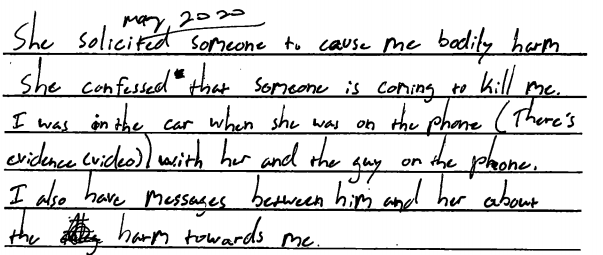 may 2020
She solicited someone to cause me bodily harm
She confessed that someone is coming to kill me.
I was in the car when she was on the phone (There's
evidence (video)) with her and the guy on the phone.
I also have messages between him and her about
the harm towards me.